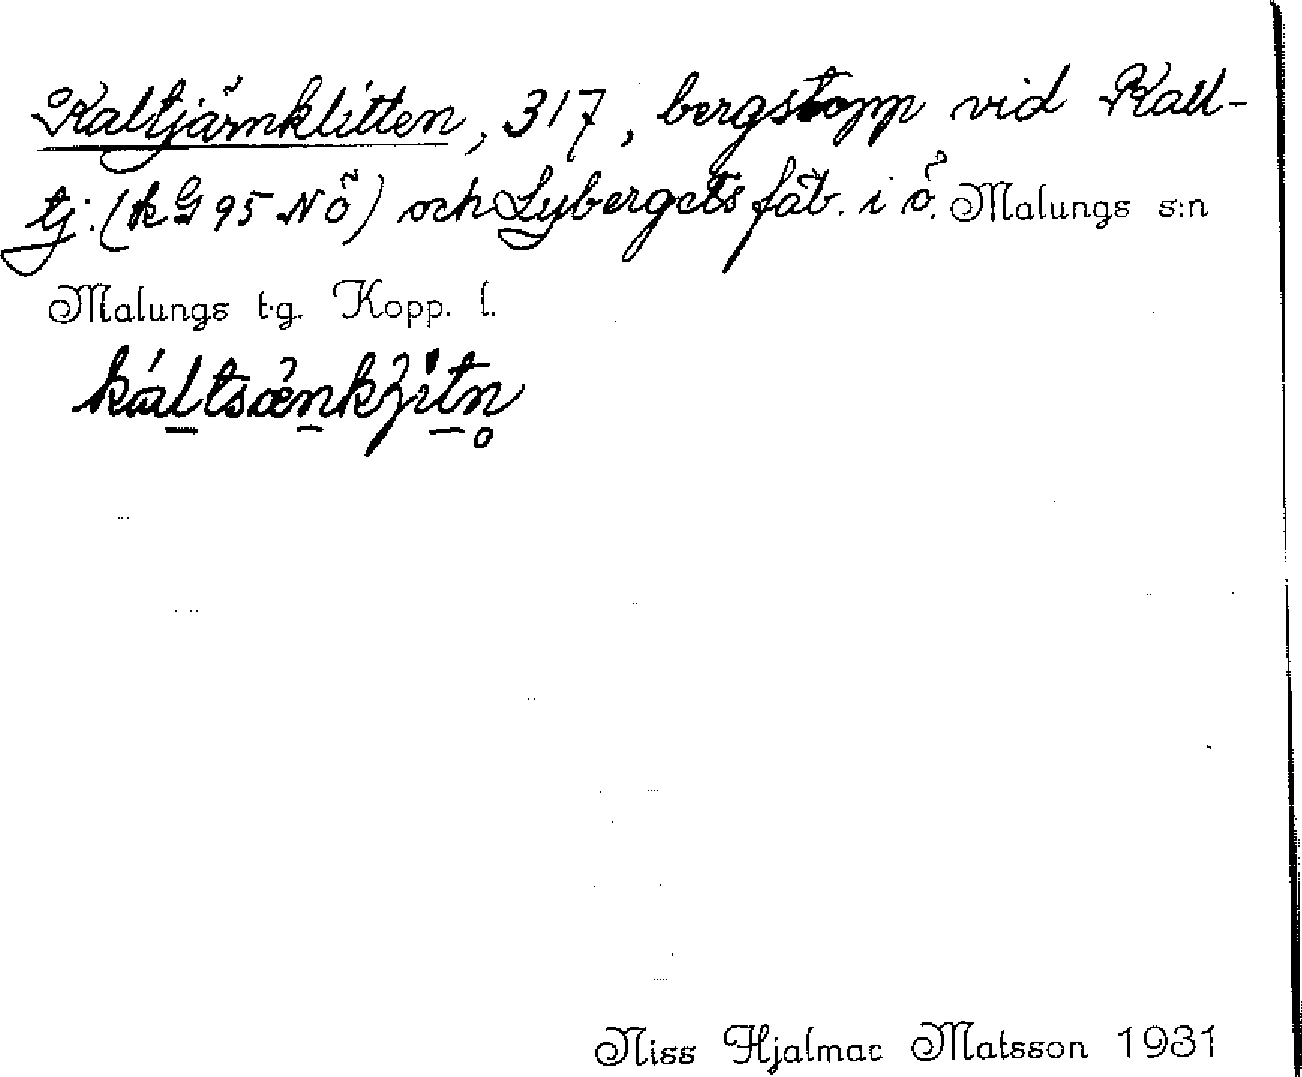 Kaltjärnklitten, 317, bergstopp vid Kall-
tj. (k G 95 NÖ) och Lybergets fäb. i ö. Malungs s:n
Malungs t.g. Kopp. l.
Niss Hjalmar Matsson 1931